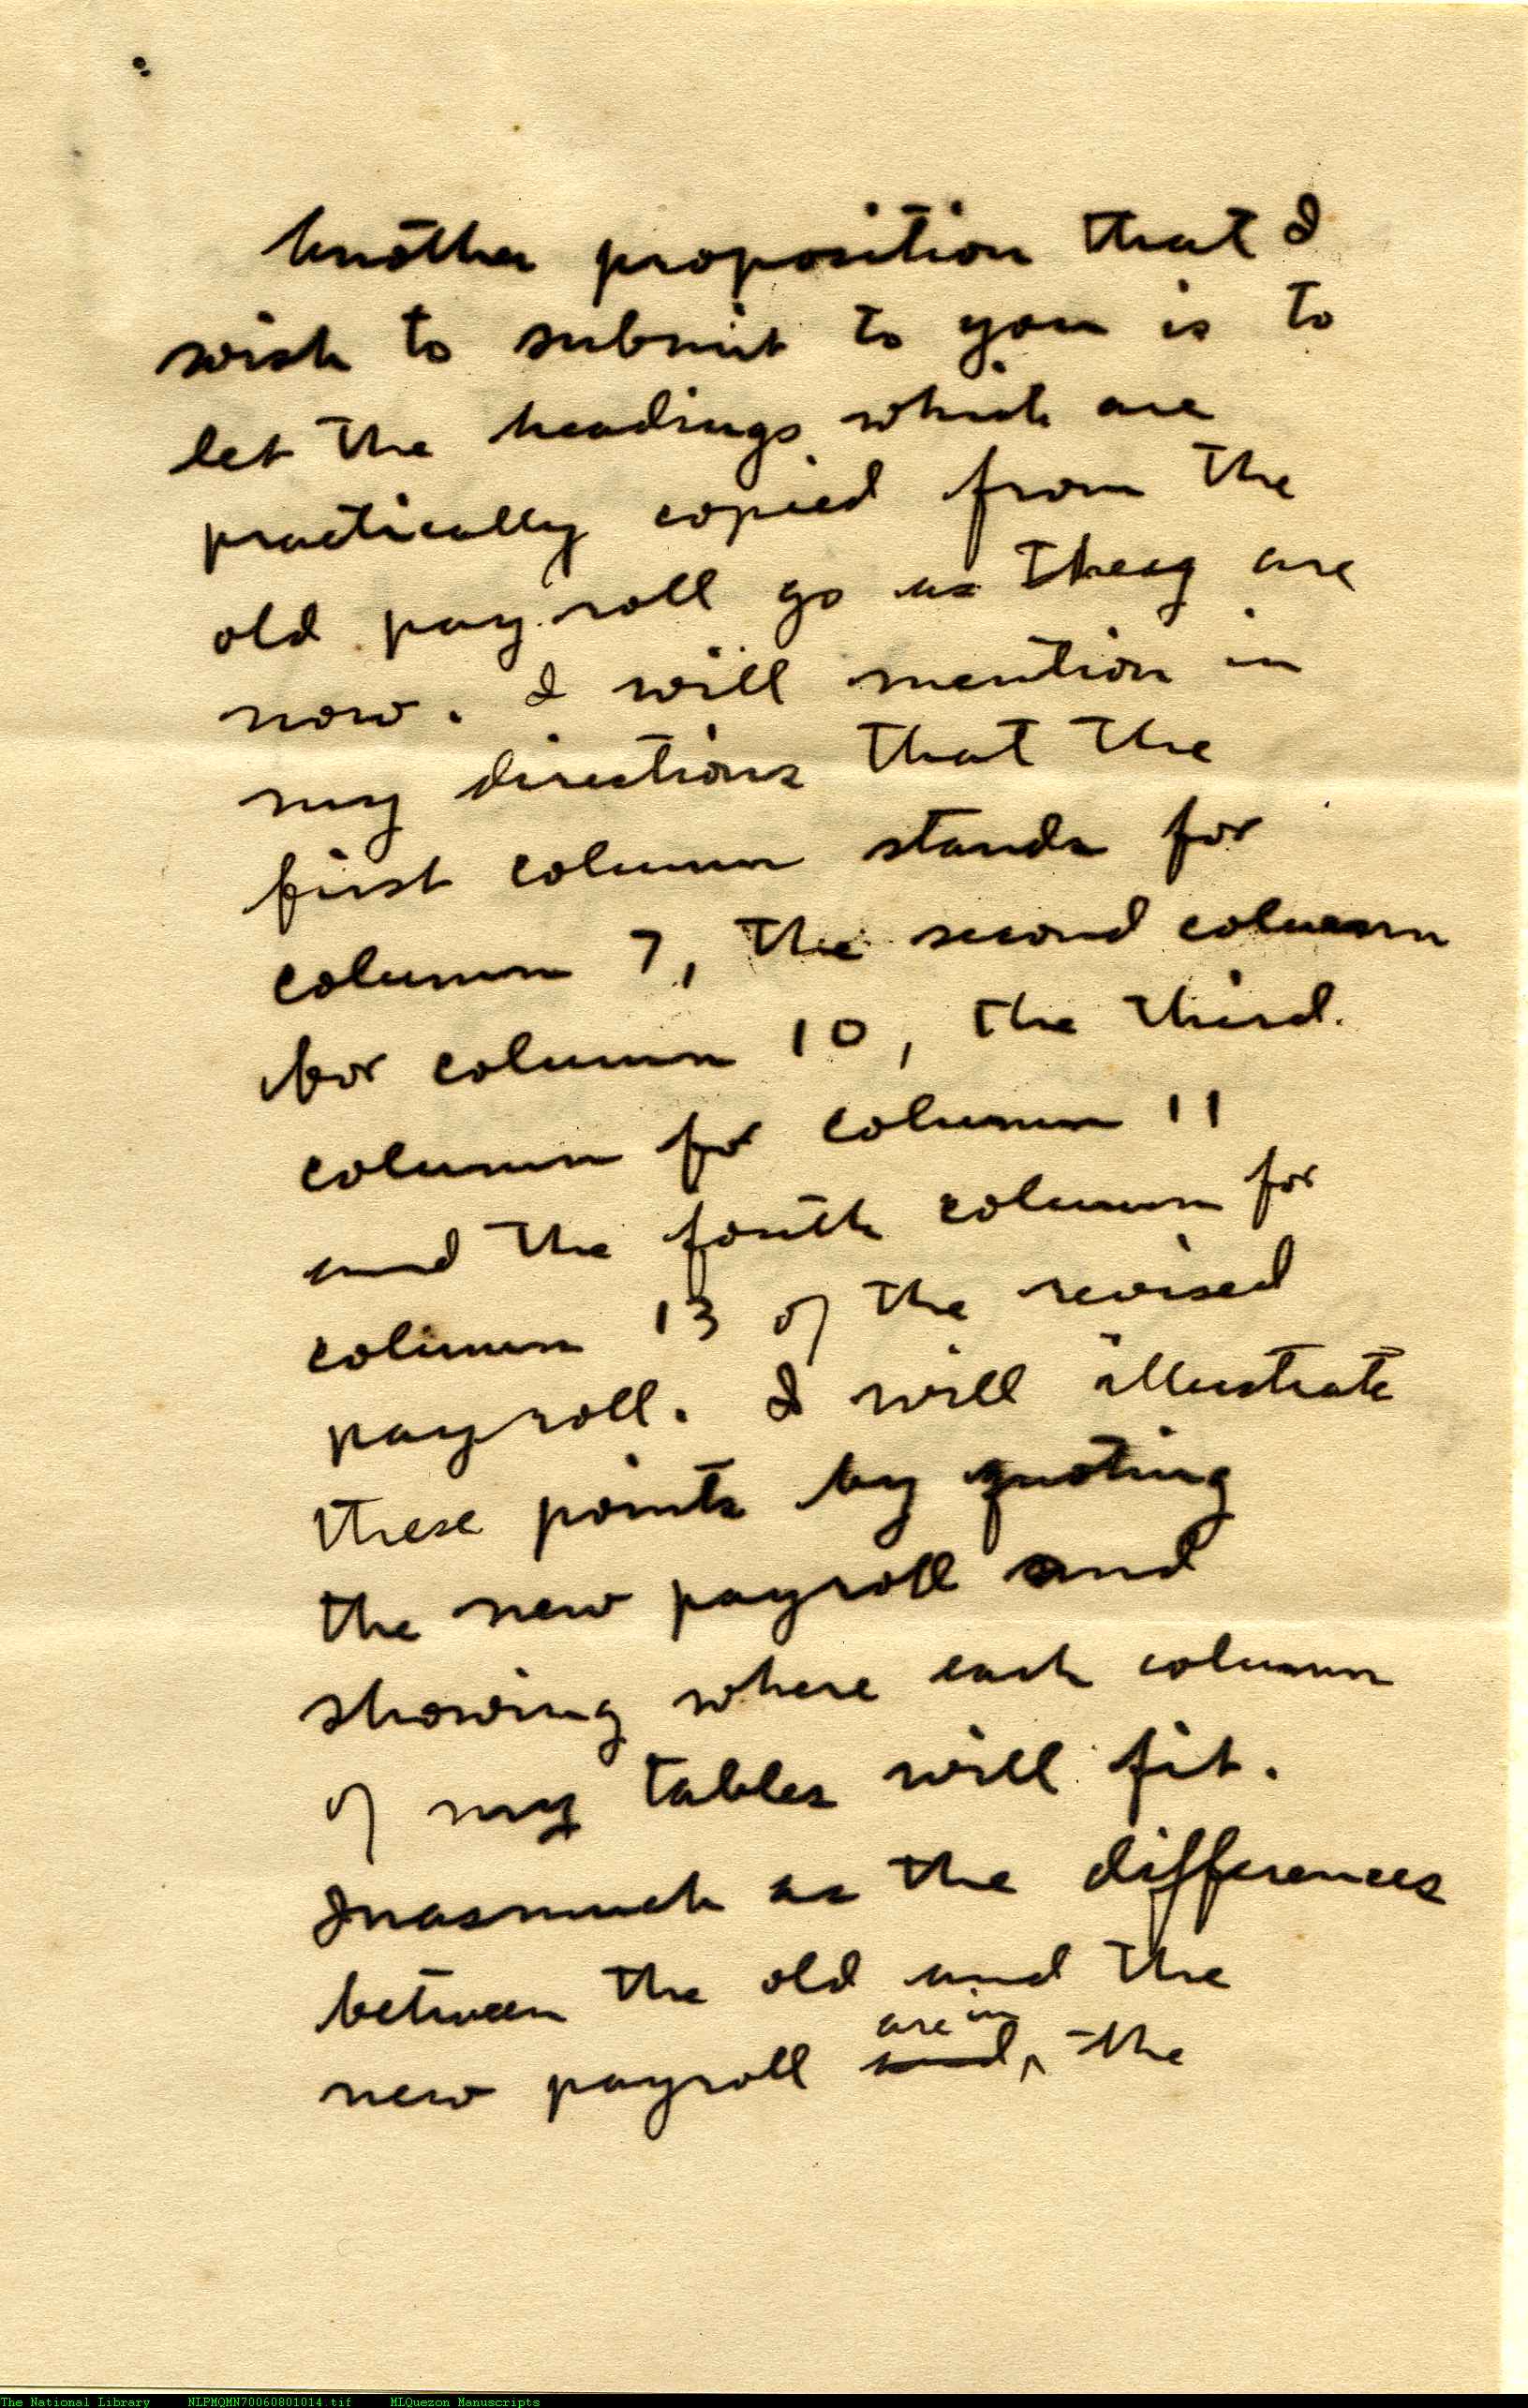 Another proposition that I
wish to submit to you is to
let the headings which are
practically copied from the
old payroll go as they are
now. I will mention in
my directions that the
first column stands for
column 7, the second column
for column 10, the third
column for column 11
and the fouth column for
column 13 of the revised
payroll. I will illustrate
these points by quoting
the new payroll and
showing where each column
of my tables will fit.
Inasmuch as the differences
between the old and the
are in
new payroll and, the
The National Library NLPMQMN70060801014.tif MLQuezon Manuscripts